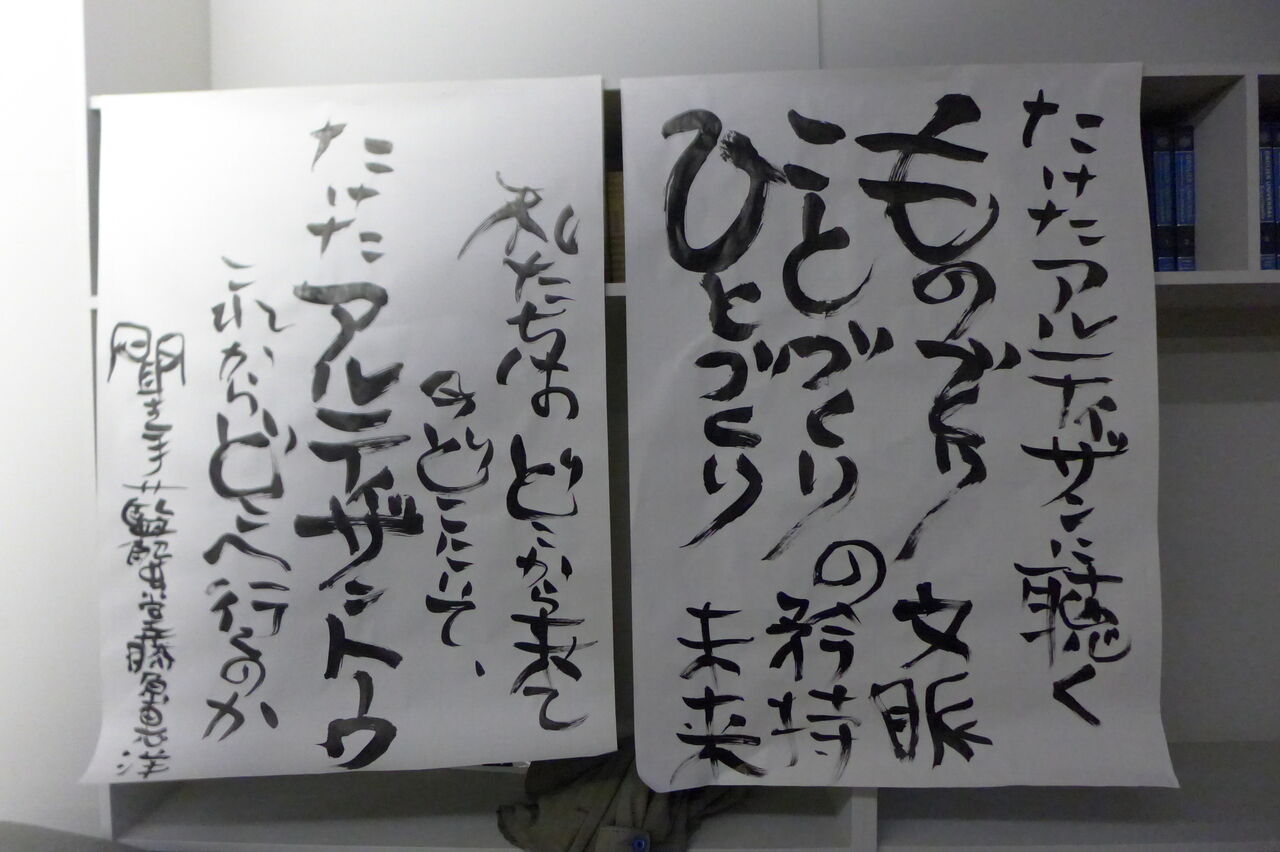 たけたアルティザンに聴く
ものづくり 文脈
ことづくり の 矜持
ひとづくり 未来
私たちはどこから来て
今どこにいて、
たけたアルティザントーク
これからどこへ行くのか
聞き手